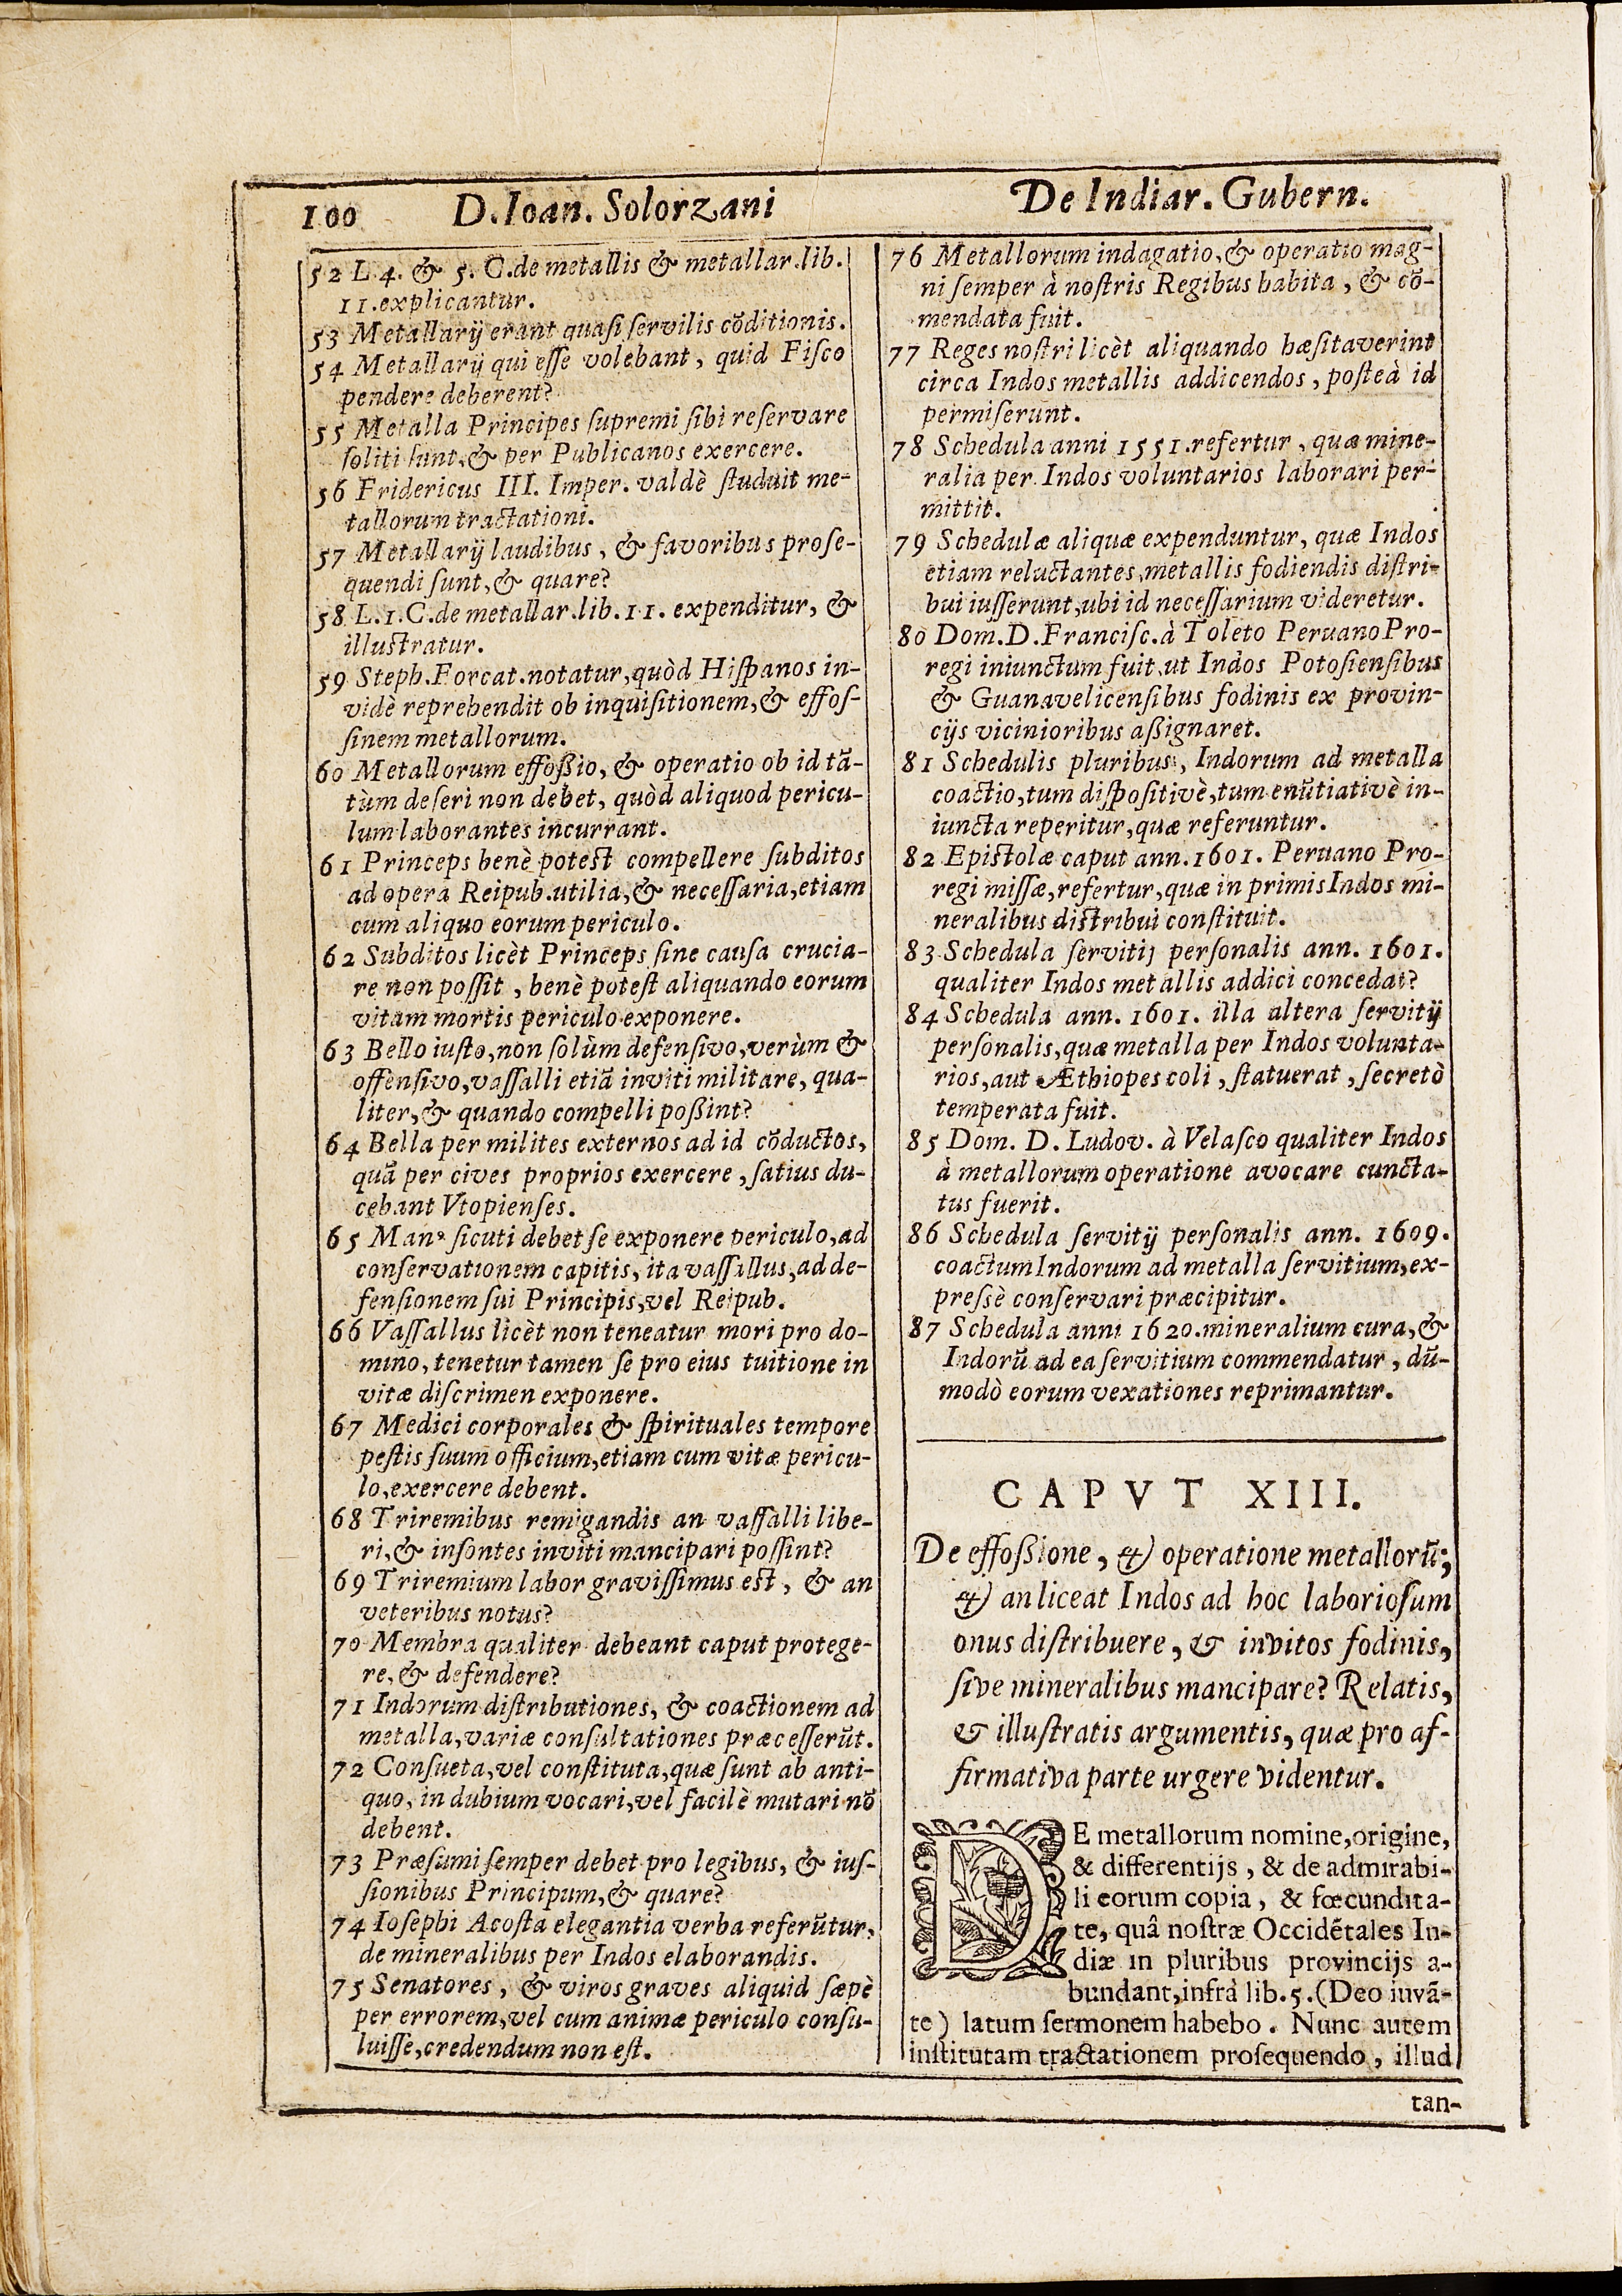 100 D. Ioan. Solorzani De Indiar. Gubern.
52 L. 4. & 5. C. de metallis & metallar. lib.
11. explicantur.
53 Metallarij erant quasi servilis cõditionis.
54 Metallarij qui esse volebant, quid Fisco
pendere deberent?
55 Metalla Principes supremi sibi reservare
soliti sunt, & per Publicanos exercere.
56 Fridericus III. Imper. valdè studuit me-
tallorum tractationi.
57 Metallarij laudibus, & favoribus prose-
quendi sunt, & quare?
58 L. 1. C. de metallar. lib. 11. expenditur, &
illustratur.
59 Steph. Forcat. notatur, quòd Hispanos in-
vidè reprehendit ob inquisitionem, & effos-
sinem metallorum.
60 Metallorum effoßio, & operatio ob id tã-
tùm deseri non debet, quòd aliquod pericu-
lum laborantes incurrant.
61 Princeps benè potest compellere subditos
ad opera Reipub. utilia, & necessaria, etiam
cum aliquo eorum periculo.
62 Subditos licèt Princeps sine causa crucia-
re non possit, benè potest aliquando eorum
vitam mortis periculo exponere.
63 Bello iusto, non solùm defensivo, verùm &
offensivo, vassalli etiã inviti militare, qua-
liter, & quando compelli poßint?
64 Bella per milites externos ad id cõductos,
quã per cives proprios exercere, satius du-
cebant Vtopienses.
65 Manº sicuti debet se exponere periculo, ad
conservationem capitis, ita vassallus, ad de-
fensionem sui Principis, vel Reipub.
66 Vassallus licèt non teneatur mori pro do-
mino, tenetur tamen se pro eius tuitione in
vitæ discrimen exponere.
67 Medici corporales & spirituales tempore
pestis suum officium, etiam cum vitæ pericu-
lo, exercere debent.
68 Triremibus remigandis an vassalli libe-
ri, & insontes inviti mancipari possint?
69 Triremium labor gravissimus est, & an
veteribus notus?
70 Membra qualiter debeant caput protege-
re, & defendere?
71 Indorum distributiones, & coactionem ad
metalla, variæ consultationes præcesserũt.
72 Consueta, vel constituta, quæ sunt ab anti-
quo, in dubium vocari, vel facilè mutari nõ
debent.
73 Præsumi semper debet pro legibus, & ius-
sionibus Principum, & quare?
74 Iosephi Acosta elegantia verba referũtur,
de mineralibus per Indos elaborandis.
75 Senatores, & viros graves aliquid sæpè
per errorem, vel cum animæ periculo consu-
luisse, credendum non est.
76 Metallorum indagatio, & operatio mag-
ni semper à nostris Regibus habita, & cõ-
mendata fuit.
77 Reges nostri licèt aliquando hæsitaverint
circa Indos metallis addicendos, posteà id
permiserunt.
78 Schedula anni 1551. refertur, quæ mine-
ralia per Indos voluntarios laborari per-
mittit.
79 Schedulæ aliquæ expenduntur, quæ Indos
etiam reluctantes, metallis fodiendis distri-
bui iusserunt, ubi id necessarium videretur.
80 Dom. D. Francisc. à Toleto Peruano Pro-
regi iniunctum fuit, ut Indos Potosiensibus
& Guanavelicensibus fodinis ex provin-
cijs vicinioribus aßignaret.
81 Schedulis pluribus, Indorum ad metalla
coactio, tum dispositivè, tum enũtiativè in-
iuncta reperitur, quæ referuntur.
82 Epistolæ caput ann. 1601. Peruano Pro-
regi missæ, refertur, quæ in primis Indos mi-
neralibus distribui constituit.
83 Schedula servitij personalis ann. 1601.
qualiter Indos metallis addici concedat?
84 Schedula ann. 1601. illa altera servitij
personalis, quæ metalla per Indos volunta-
rios, aut Æthiopes coli, statuerat, secretò
temperata fuit.
85 Dom. D. Ludov. à Velasco qualiter Indos
à metallorum operatione avocare cuncta-
tus fuerit.
86 Schedula servitij personalis ann. 1609.
coactum Indorum ad metalla servitium, ex-
pressè conservari præcipitur.
87 Schedula anni 1620. mineralium cura, &
Indorũ ad ea servitium commendatur, dũ-
modò eorum vexationes reprimantur.
CAPVT XIII.
De effoßione, & operatione metallorũ;
& an liceat Indos ad hoc laboriosum
onus distribuere, & invitos fodinis,
sive mineralibus mancipare? Relatis,
& illustratis argumentis, quæ pro af-
firmativa parte urgere videntur.
DE metallorum nomine, origine,
& differentijs, & de admirabi-
li eorum copia, & fœcundita-
te, quâ nostræ Occidẽtales In-
diæ in pluribus provincijs a-
bundant, infrà lib. 5. (Deo iuvã-
te) latum sermonem habebo. Nunc autem
institutam tractationem prosequendo, illud
tan-